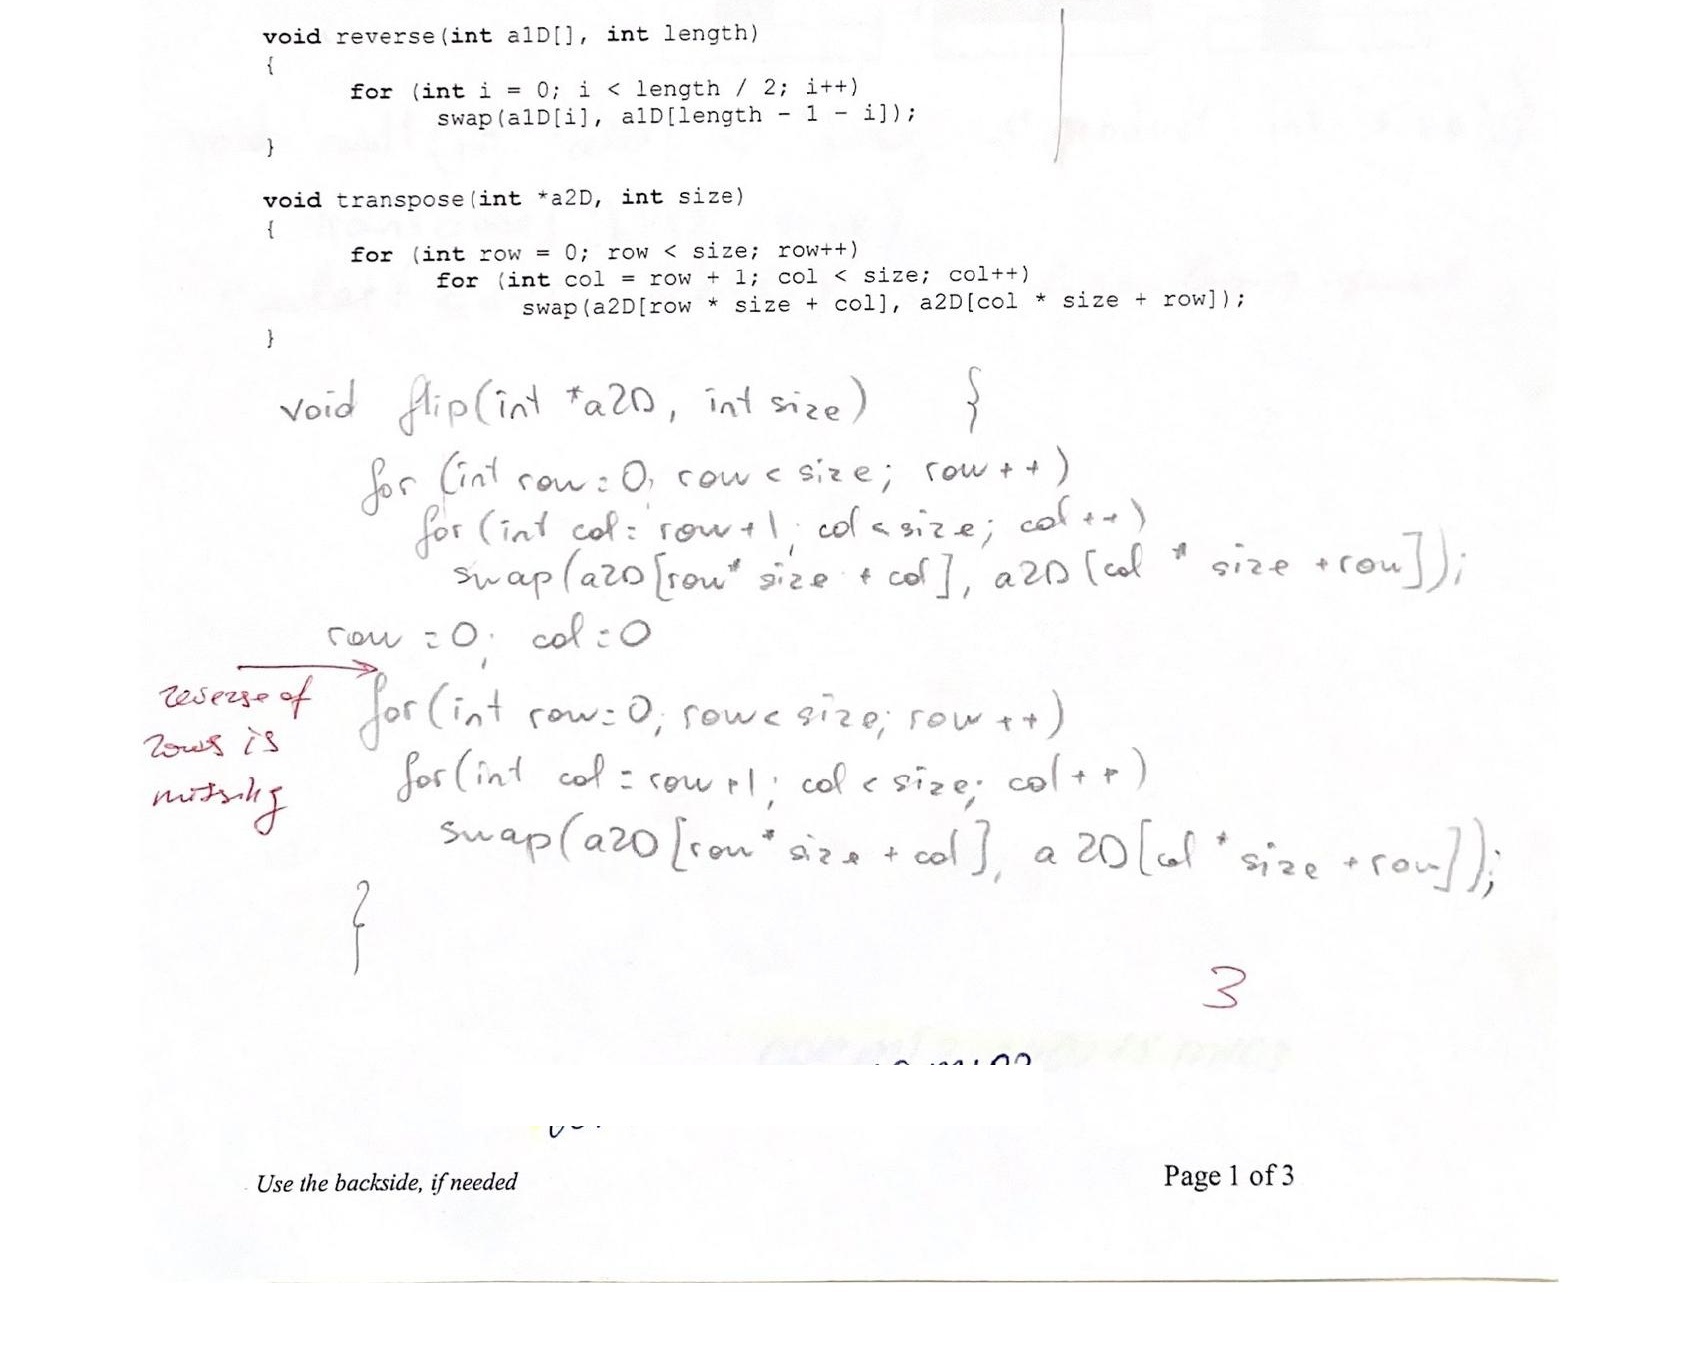 void reverse(int a1D[], int length)
{
for (int i = 0; i < length / 2; i++)
swap(a1D[i], a1D[length - 1 - i]);
}
void transpose(int *a2D, int size)
{
for (int row = 0; row < size; row++)
for (int col = row + 1; col < size; col++)
swap(a2D[row * size + col], a2D[col * size + row]);
}
void flip(int *a2D, int size) {
for (int row=0, row < size; row++)
for (int col= row+1, col < size; col++)
swap(a2D[row* size + col], a2D[col * size +row]);
row =0; col=0
reverse of
rows is
missing
for(int row=0; row< size; row++)
for(int col = row+1; col < size; col++)
swap(a2D[row* size + col], a2D[col * size +row]);
}
3
Use the backside, if needed
Page 1 of 3